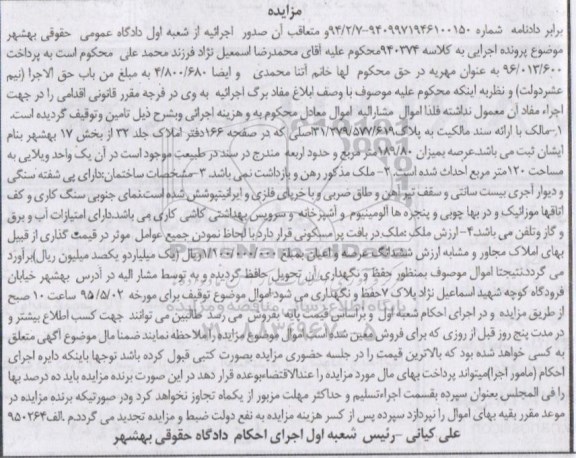 مزایده
برابر دادنامه شماره ۹۴۰۹۹۷۱۹۴۶۱۰۰۱۵۰-۹۴/۲/۷ و متعاقب آن صدور اجرائیه از شعبه اول دادگاه عمومی حقوقی بهشهر
موضوع پرونده اجرایی به کلاسه ۹۴۰۳۷۴ محکوم علیه آقای محمدرضا اسمعیل نژاد فرزند محمد علی محکوم است به پرداخت
۹۶/۰۱۳/۶۰۰ به عنوان مهریه در حق محکوم لها خانم آتنا محمدی و ایضا ۴/۸۰۰/۶۸۰ به مبلغ من باب حق الاجرا (نیم
عشردولت) و نظربه اینکه محکوم علیه موصوف با وصف ابلاغ مفاد برگ اجرائیه به وی در فرجه مقرر قانونی اقدامی را در جهت
اجراء مفاد آن معمول نداشته فلذا اموال مشارالیه اموال معادل محکوم به و هزینه اجرائی وبشرح ذیل تامین و توقیف گردیده است.
۱-مالک با ارائه سند مالکیت به پلاک ۳۱/۲۷۹/۵۷۷/۶۱۹ اصلی که در صفحه ۱۶۶ دفتر املاک جلد ۳۲ از بخش ۱۷ بهشهر بنام
ایشان ثبت می باشدعرصه بمیزان ۱۸۹/۸۰ متر مربع و حدود اربعه مندرج در سند در طبیعت موجود است در آن یک واحد ویلایی به
مساحت ۱۲۰متر مربع احداث شده است. ۲- ملک مذکور رهن و بازداشت نمی باشد. ۳-مشخصات ساختمان:دارای پی شفته سنگی
و دیوار آجری بیست سانتی و سقف تیر آهن و طاق ضربی و با خرپای فلزی و ایرانیتپوشش شده است نمای جنوبی سنگ کاری و کف
اتاقها موزائیک و در بها چوبی و پنجره ها آلومینیوم و آشپزخانه و سرویس بهداشتی کاشی کاری می باشد.دارای امتیازات آب و برق
و گاز وتلفن می باشد.۴-ارزش ملک :ملک در بافت پر مسکونی قرار دارد.با لحاظ نمودن جمیع عوامل موثر در قیمت گذاری از قبیل
بهای املاک مجاور و مشابه ارزش ششدانگ عرصه و اعیان بمبلغ ریال (یک میلیاردو یکصد میلیون ریال)برآورد
می گردد.نتیجتا اموال موصوف بمنظور حفظ و نگهداری آن تحویل حافظ گردیده و به توسط مشار الیه در آدرس بهشهر خیابان
فرودگاه کوچه شهید اسماعیل نژاد پلاک ۷ حفظ و نگهداری می شود.اموال موضوع توقیف برای مورخه ۹۵/۵/۰۲ ساعت ۱۰ صبح
از طریق مزایده و در اجرای احکام شعبه اول و براساس قیمت پایه بفروش می رسد طالبین می توانند جهت کسب اطلاع بیشتر و
در مدت پنج روز قبل از روزی که برای فروش تعیین شده است اموال موضوع مزایده را ملاحظه نمایند ضمنا مال موضوع آگهی متعلق
به کسی خواهد شد بود که بالاترین قیمت را در جلسه حضوری مزایده بصورت کتبی قبول کرده باشد توجها باینکه دایره اجرای
احکام (مامور اجرا)میتواند پرداخت بهای مال مورد مزایده را عندالاقتضابموعده قرار دهد در این صورت برنده مزایده باید ده درصد بها
را فی المجلس بعنوان سپرده بقسمت اجراءتسلیم و حداکثر مهلت مزبور از یکماه تجاوز نخواهد کرد ودر صورتیکه برنده مزایده در
موعد مقرر بقیه بهای اموال را نپردازد سپرده پس از کسر هزینه مزایده به نفع دولت ضبط و مزایده تجدید می گردد.م .الف۹۵۰۲۶۴
علی کیانی -رئیس شعبه اول اجرای احکام دادگاه حقوقی بهشهر